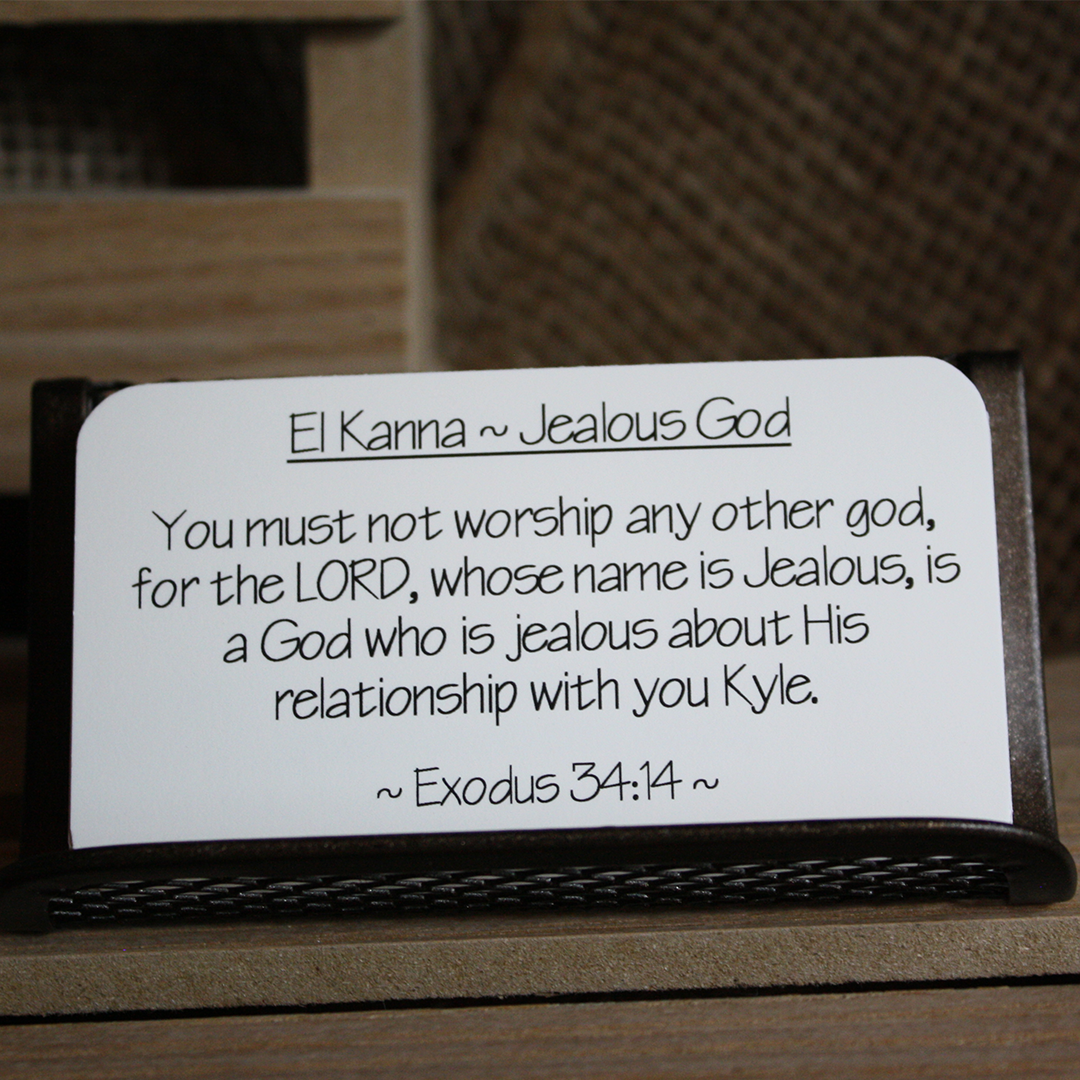 El Kanna ~ Jealous God
You must not worship any other god,
for the LORD, whose name is Jealous, is
a God who is jealous about His
relationship with you Kyle.
~ Exodus 34:14 ~